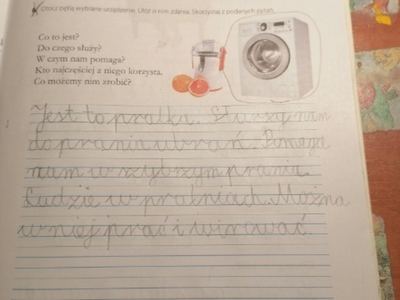 Otocz pętlą wybrane urządzenie. Ułóż o nim zdania. Skorzystaj z podanych pytań.
Co to jest?
Do czego służy?
W czym nam pomaga?
Kto najczęściej z niego korzysta.
Co możemy nim zrobić?
Jest to pralka. Służy nam
do prania ubrań. Pomaga
nam w szybszym praniu.
Ludzie w pralniach. Można
w niej prać i wirować.